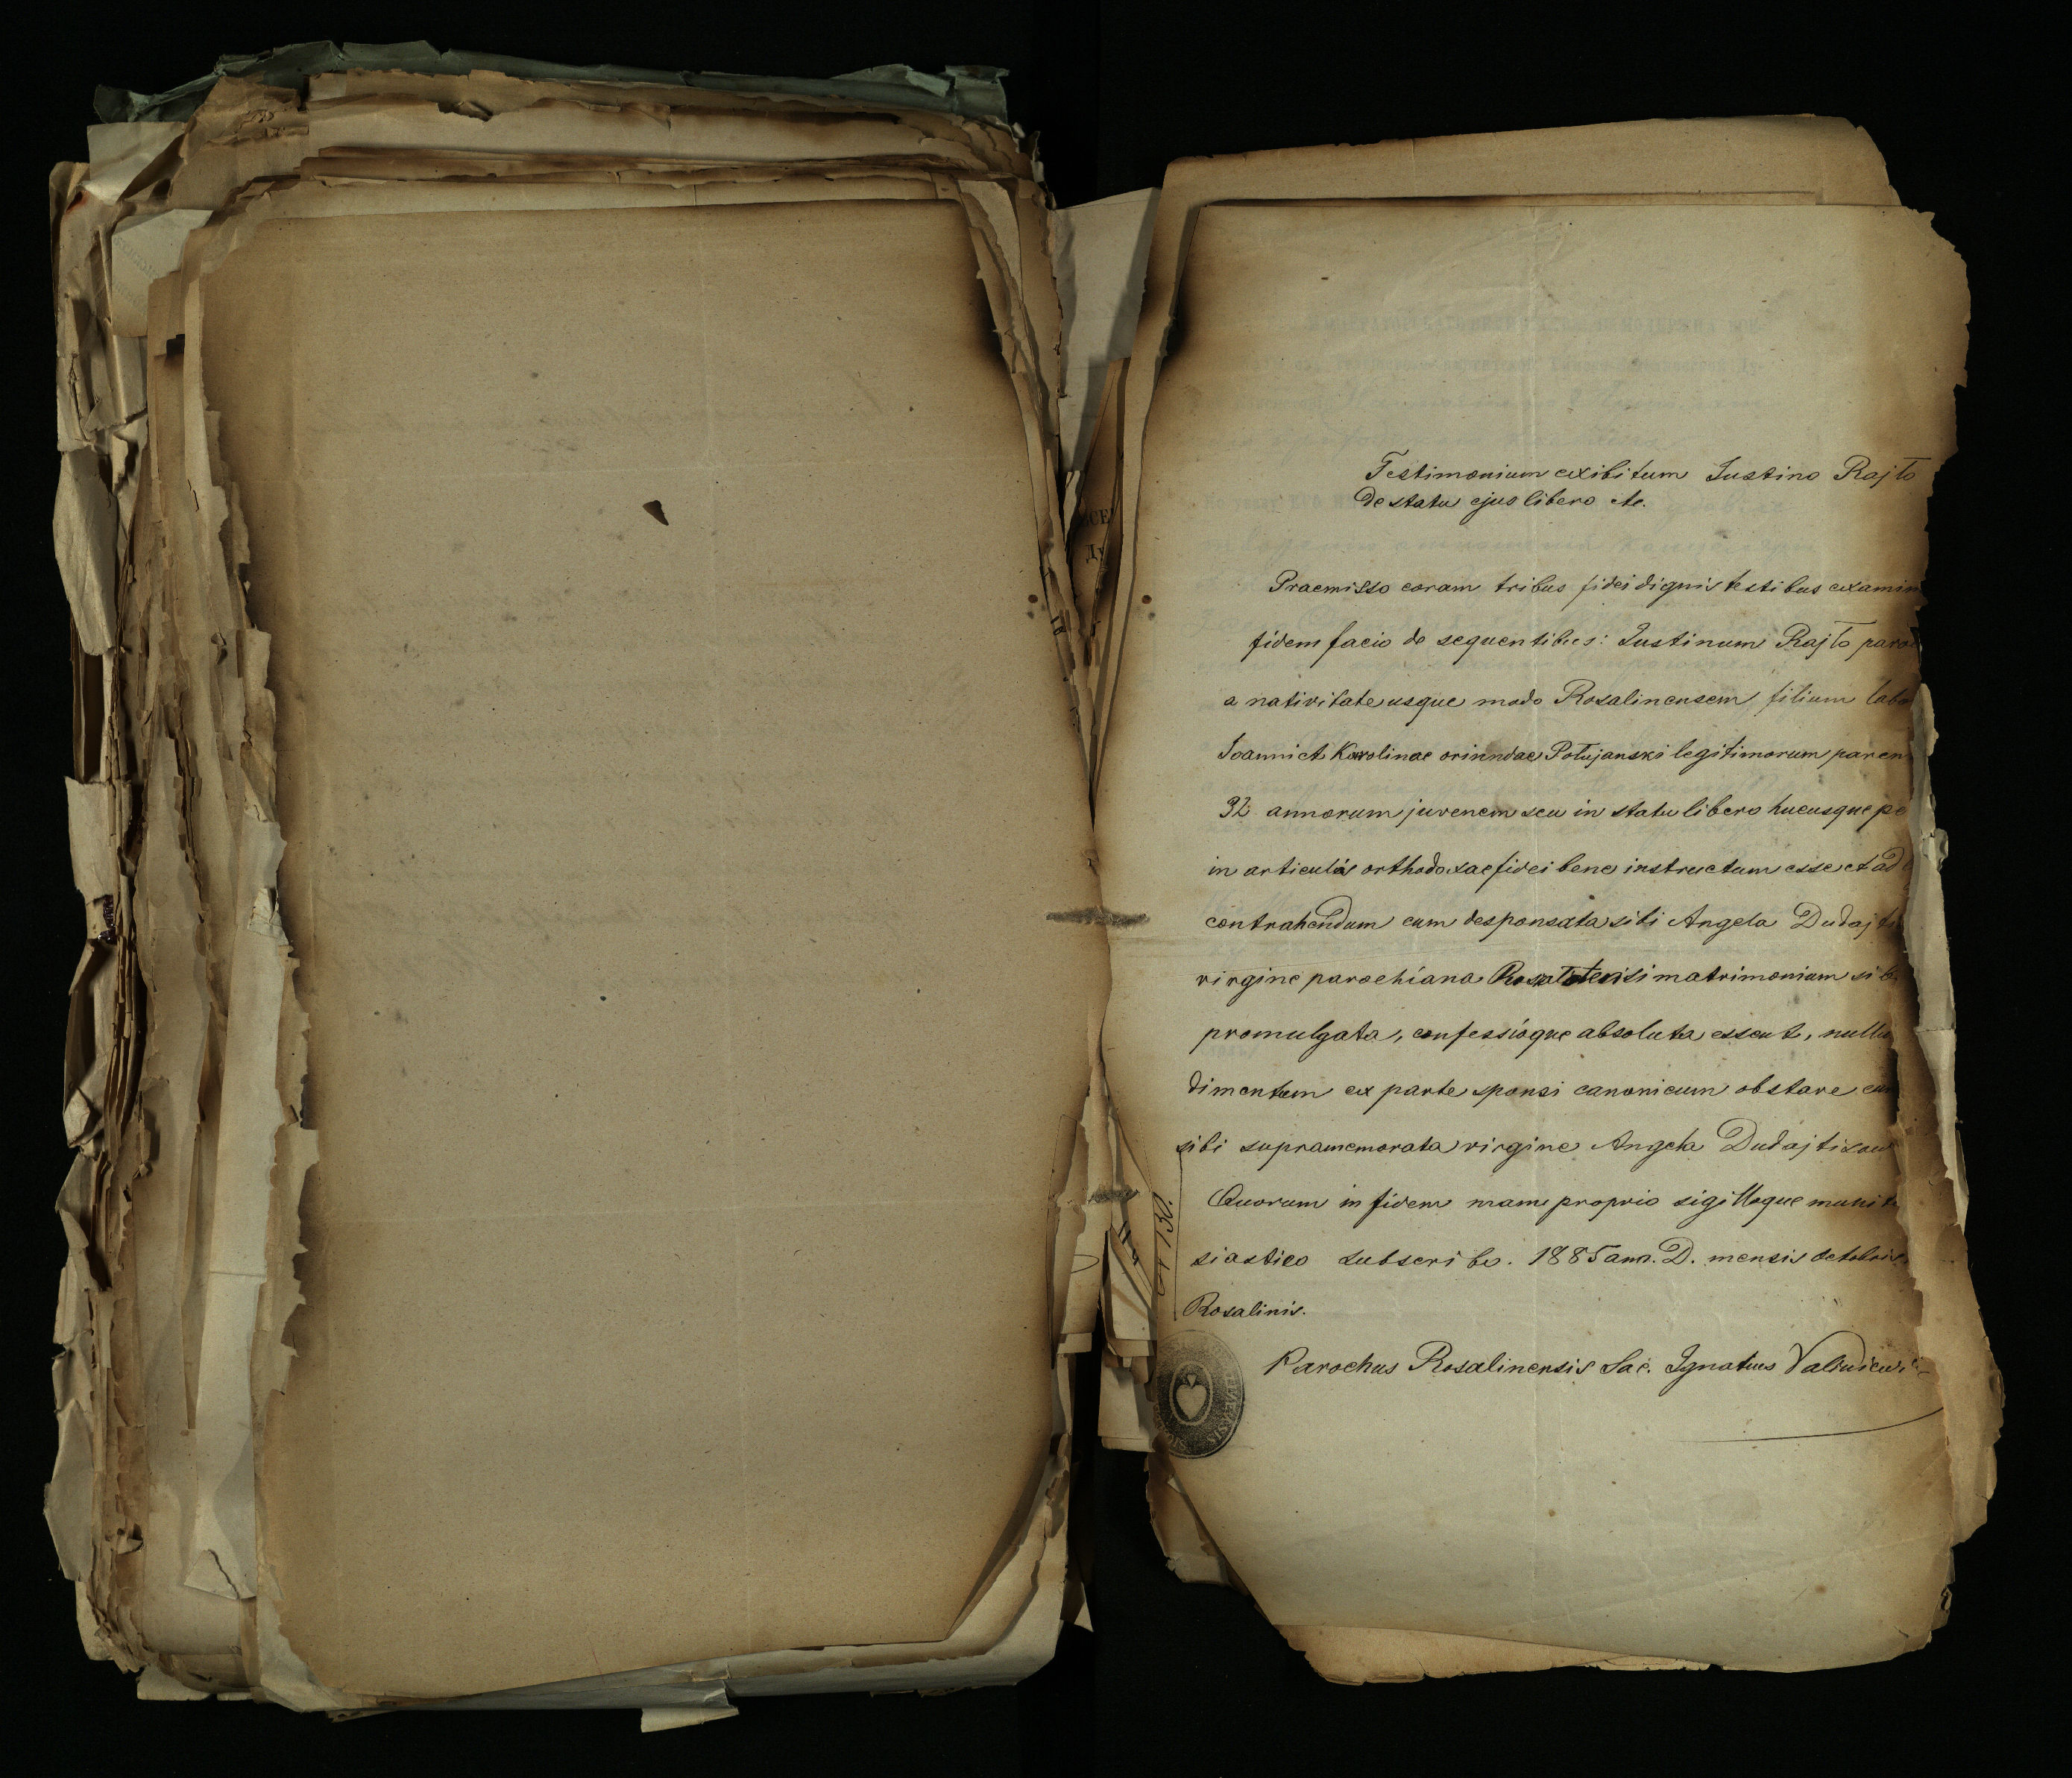 Testimonium exibitum Justino Rajto
de statu ejus libero etc.
Praemisso coram tribus fidei dignis testibus examin
fidem facio de sequentibus: Justinum Rajto paro
a nativitate usque modo Rosalinensem filium labo
Joannis et Karolinae oriundae Połujanski legitimorum paren
32 annorum juvenem seu in statu libero hucusque pe
in articulis orthodoxae fidei bene instructum esse et ad
contrahendum cum desponsata sibi Angela Dudajt
virgine parochiana matrimonium si b
promulgata, confessioque absoluta essent, null
dimentum ex parte sponsi canonicum obstare cum
sibi supramemorata virgine Angela Dudajtisow
Quorum in fidem manu proprio sigilloque munit
siastico subscribo. 1885 ann. D. mensis Octobris
Rosalinis.
Parochus Rosalinensis Sac. Ignatius
№ 130.